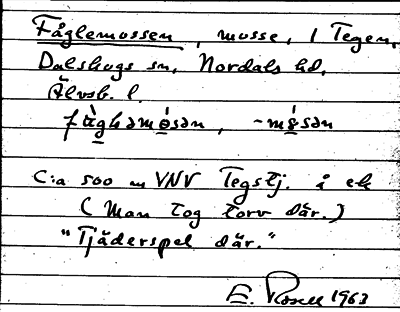 Fåglemossen, mosse, 1 Tegen,
Dalskogs sn, Nordals hd,
Älvsb. l.
fåghəmosən, -mosən
C:a 500 m VNV Tegstj. å ek
(Man tog torv där.)
"Tjäderspel där."
E. Rosell 1963